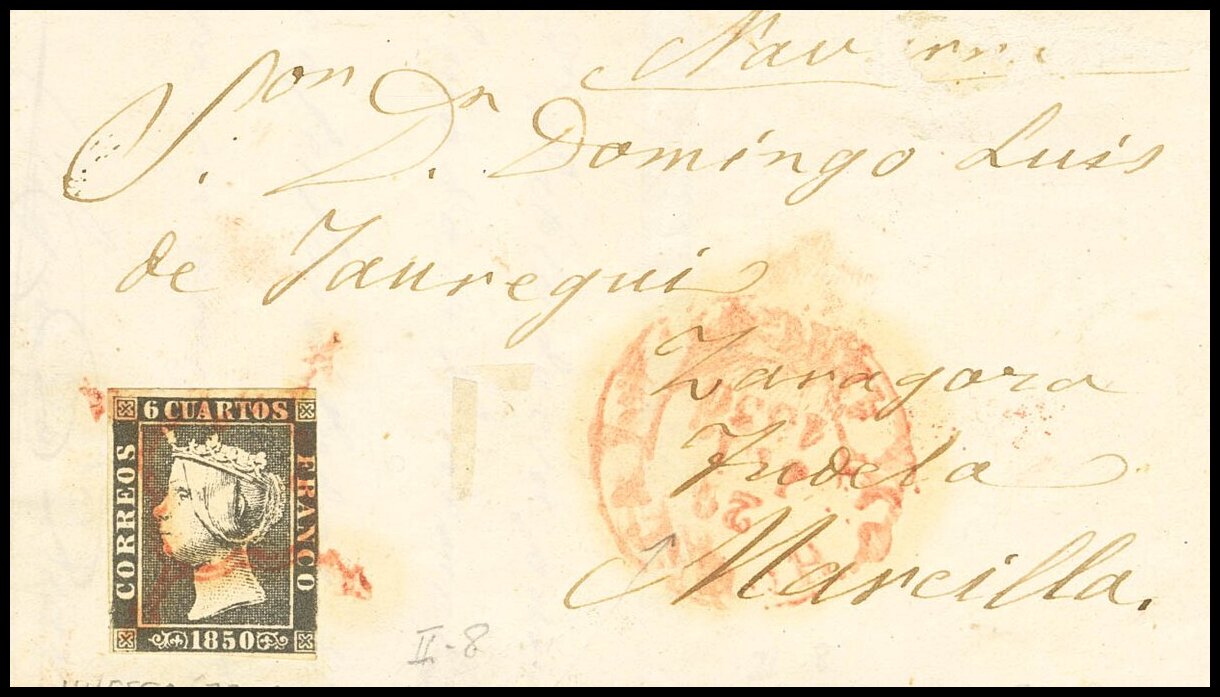 S.or D.n Domingo Luis
de Jauregui
Zaragoza
Tudela
Marcilla.
6 CUARTOS
CORREOS
FRANCO
1850
II-8